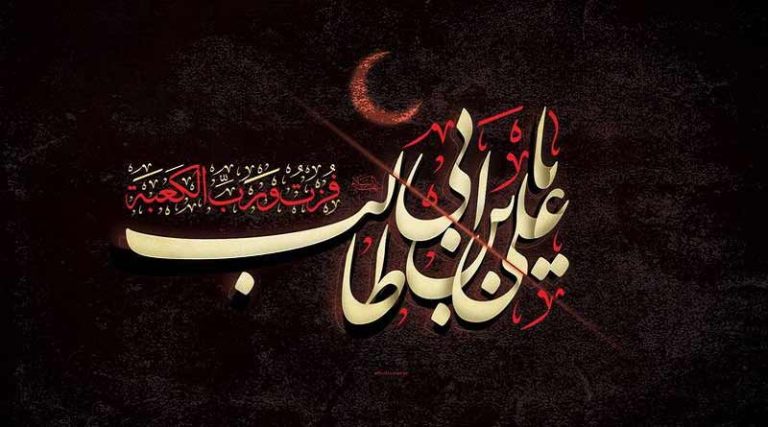 یا علی بن ابی طالب
فُزتُ وَ رَبِّ الکَعبَة